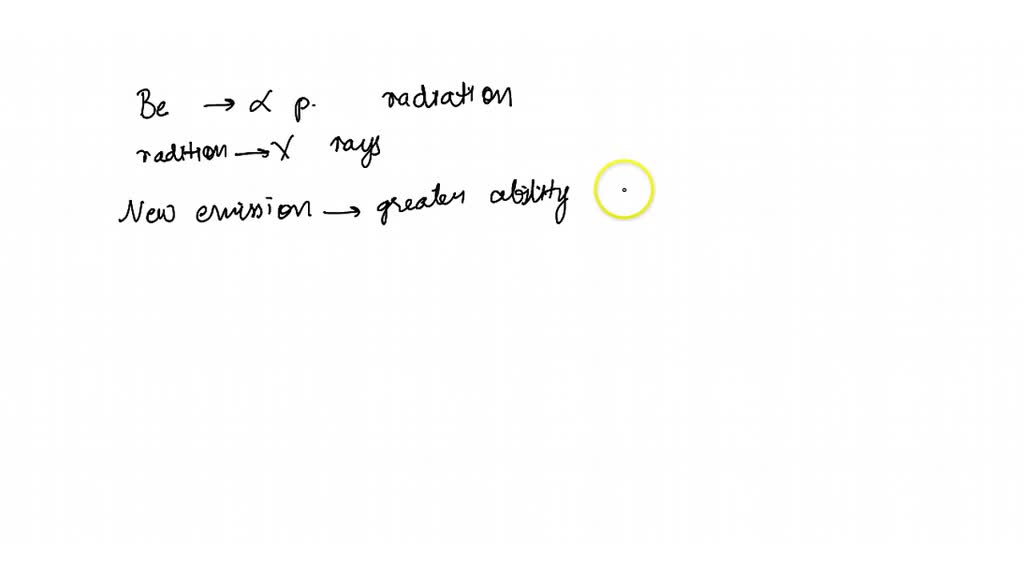 Be → α p. radiation
radition → γ rays
New emission → greater ability